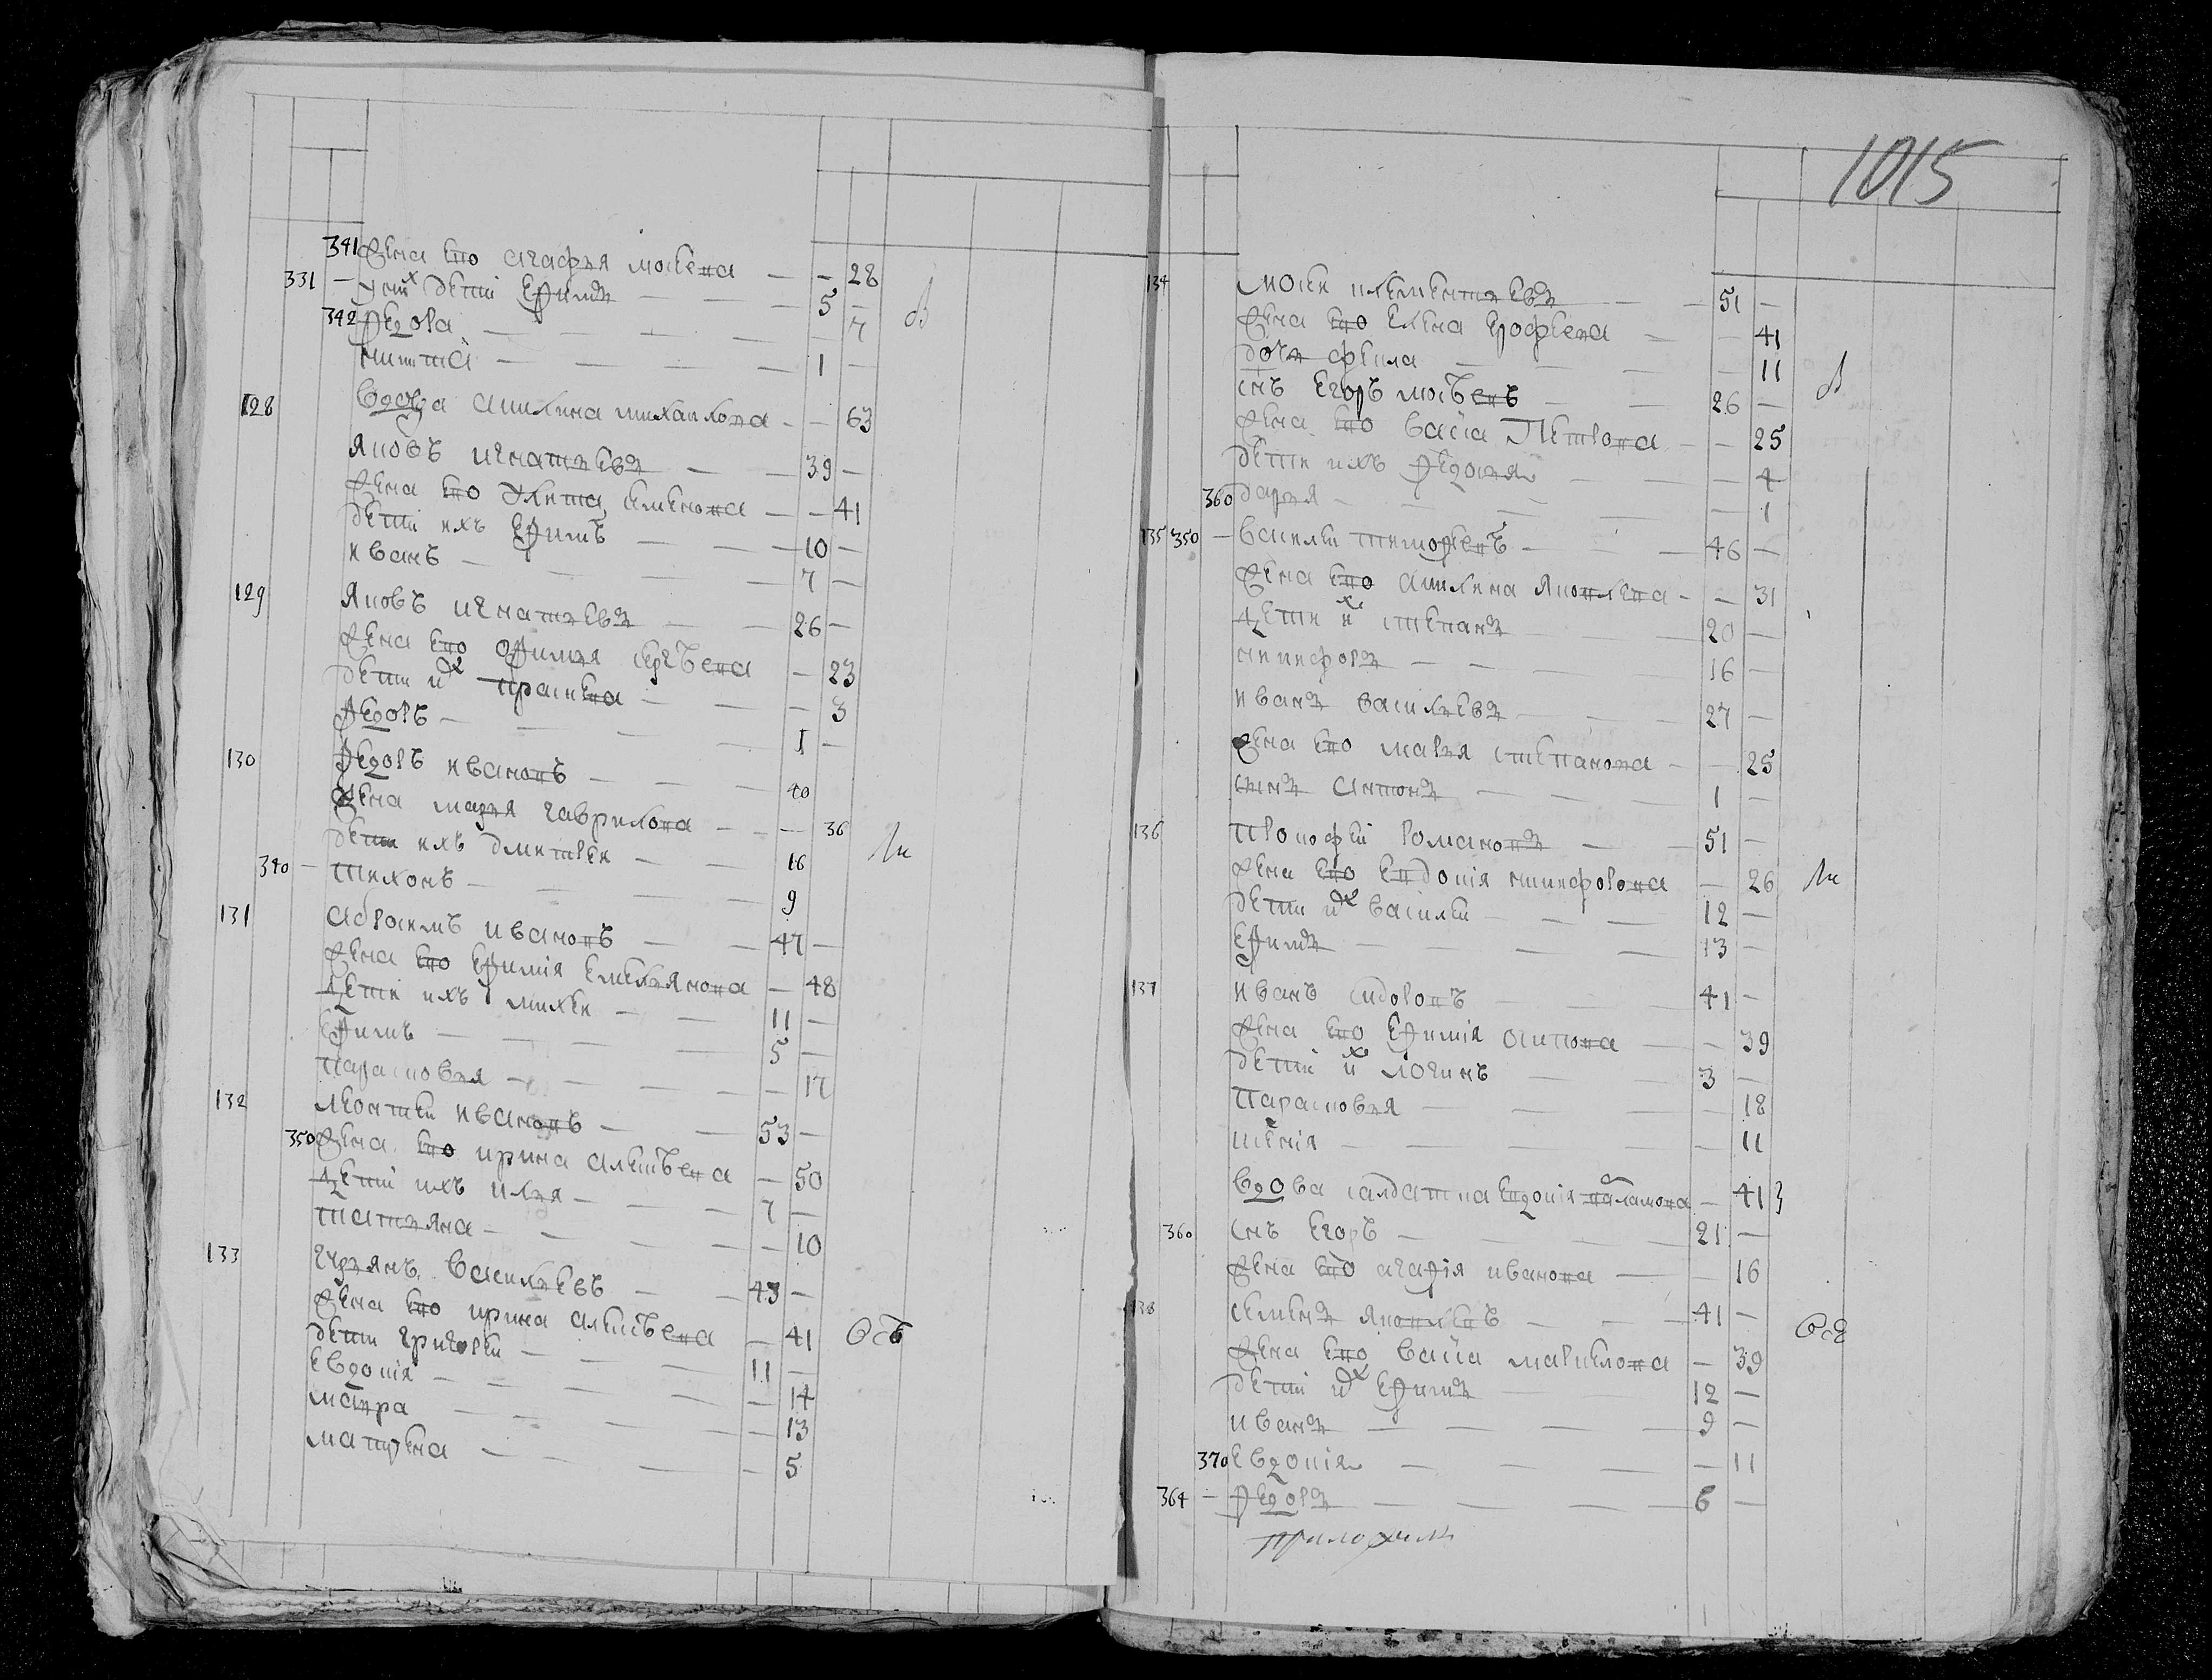 341 жена ево агафья мосеева — — 28
331 — у них дети ефимъ — — 5 —
342 федора — — — 7
никита — — — 1 —
128 вдова акилина михаилова — — 63
яковъ игнатьевъ — — 39 —
жена ево улита семенова — — 41
дети ихъ ефимъ — — 10 —
иванъ — — — 7 —
129 яковъ игнатьевъ — — 26 —
жена ево офимья сергѣева — 23
дети их прасковя — — — 3
федоръ — — — 1 —
130 федоръ ивановъ — — — 40
жена марья гаврилова — — — 36
дети ихъ дмитреи — — 16
340 — тихонъ — — — 9
131 абраимъ ивановъ — — 47 —
жена ево ефимія емельянова — 48
дети ихъ михеи — — 11 —
ефимъ — — — 5 —
парасковья — — — 17
132 леонтеи ивановъ — — 53 —
350 жена ево ирина алексѣева — 50
дети ихъ илья — — — 7 —
татьяна — — — 10
133 гурьянъ васильевъ — — 43 —
жена ево ирина алексѣева — 41
дети григореи — — — 11 —
евдокія — — — 14
мавра — — — 13
матрена — — — 5
1015
134 мосеи клементьевъ — — 51 —
жена ево елена ерофеева — — 41
дочь фекла — — — 11
снъ егоръ мосѣевъ — — 26 —
жена ево васса петрова — — 25
дети ихъ федосья — — — 4
360 дарья — — — 1
135 350 — василеи тимофеевъ — — — 46 —
жена ево акилина яковлева — — 31
дети их степанъ — — 20 —
никифоръ — — — 16 —
иванъ васильевъ — — — 27 —
жена ево марья степанова — — 25
сынъ антонъ — — — 1 —
136 прокофеи романовъ — — 51 —
жена ево евдокія никифорова — 26
дети их василеи — — — 12 —
ефимъ — — — 13 —
137 иванъ сидоровъ — — — 41 —
жена ево ефимія осипова — — 39
дети их логинъ — — 3 —
парасковья — — — 18
ксенія — — — 11
вдова салдатка евдокія — 41
360 снъ егоръ — — — 21 —
жена ево агафія иванова — — 16
138 семенъ яковлевъ — — — 41 —
жена ево васса маркелова — 39
дети их ефимъ — — 12 —
иванъ — — — 9 —
370 евдокия — — — 11
364 — федоръ — — — 6 —